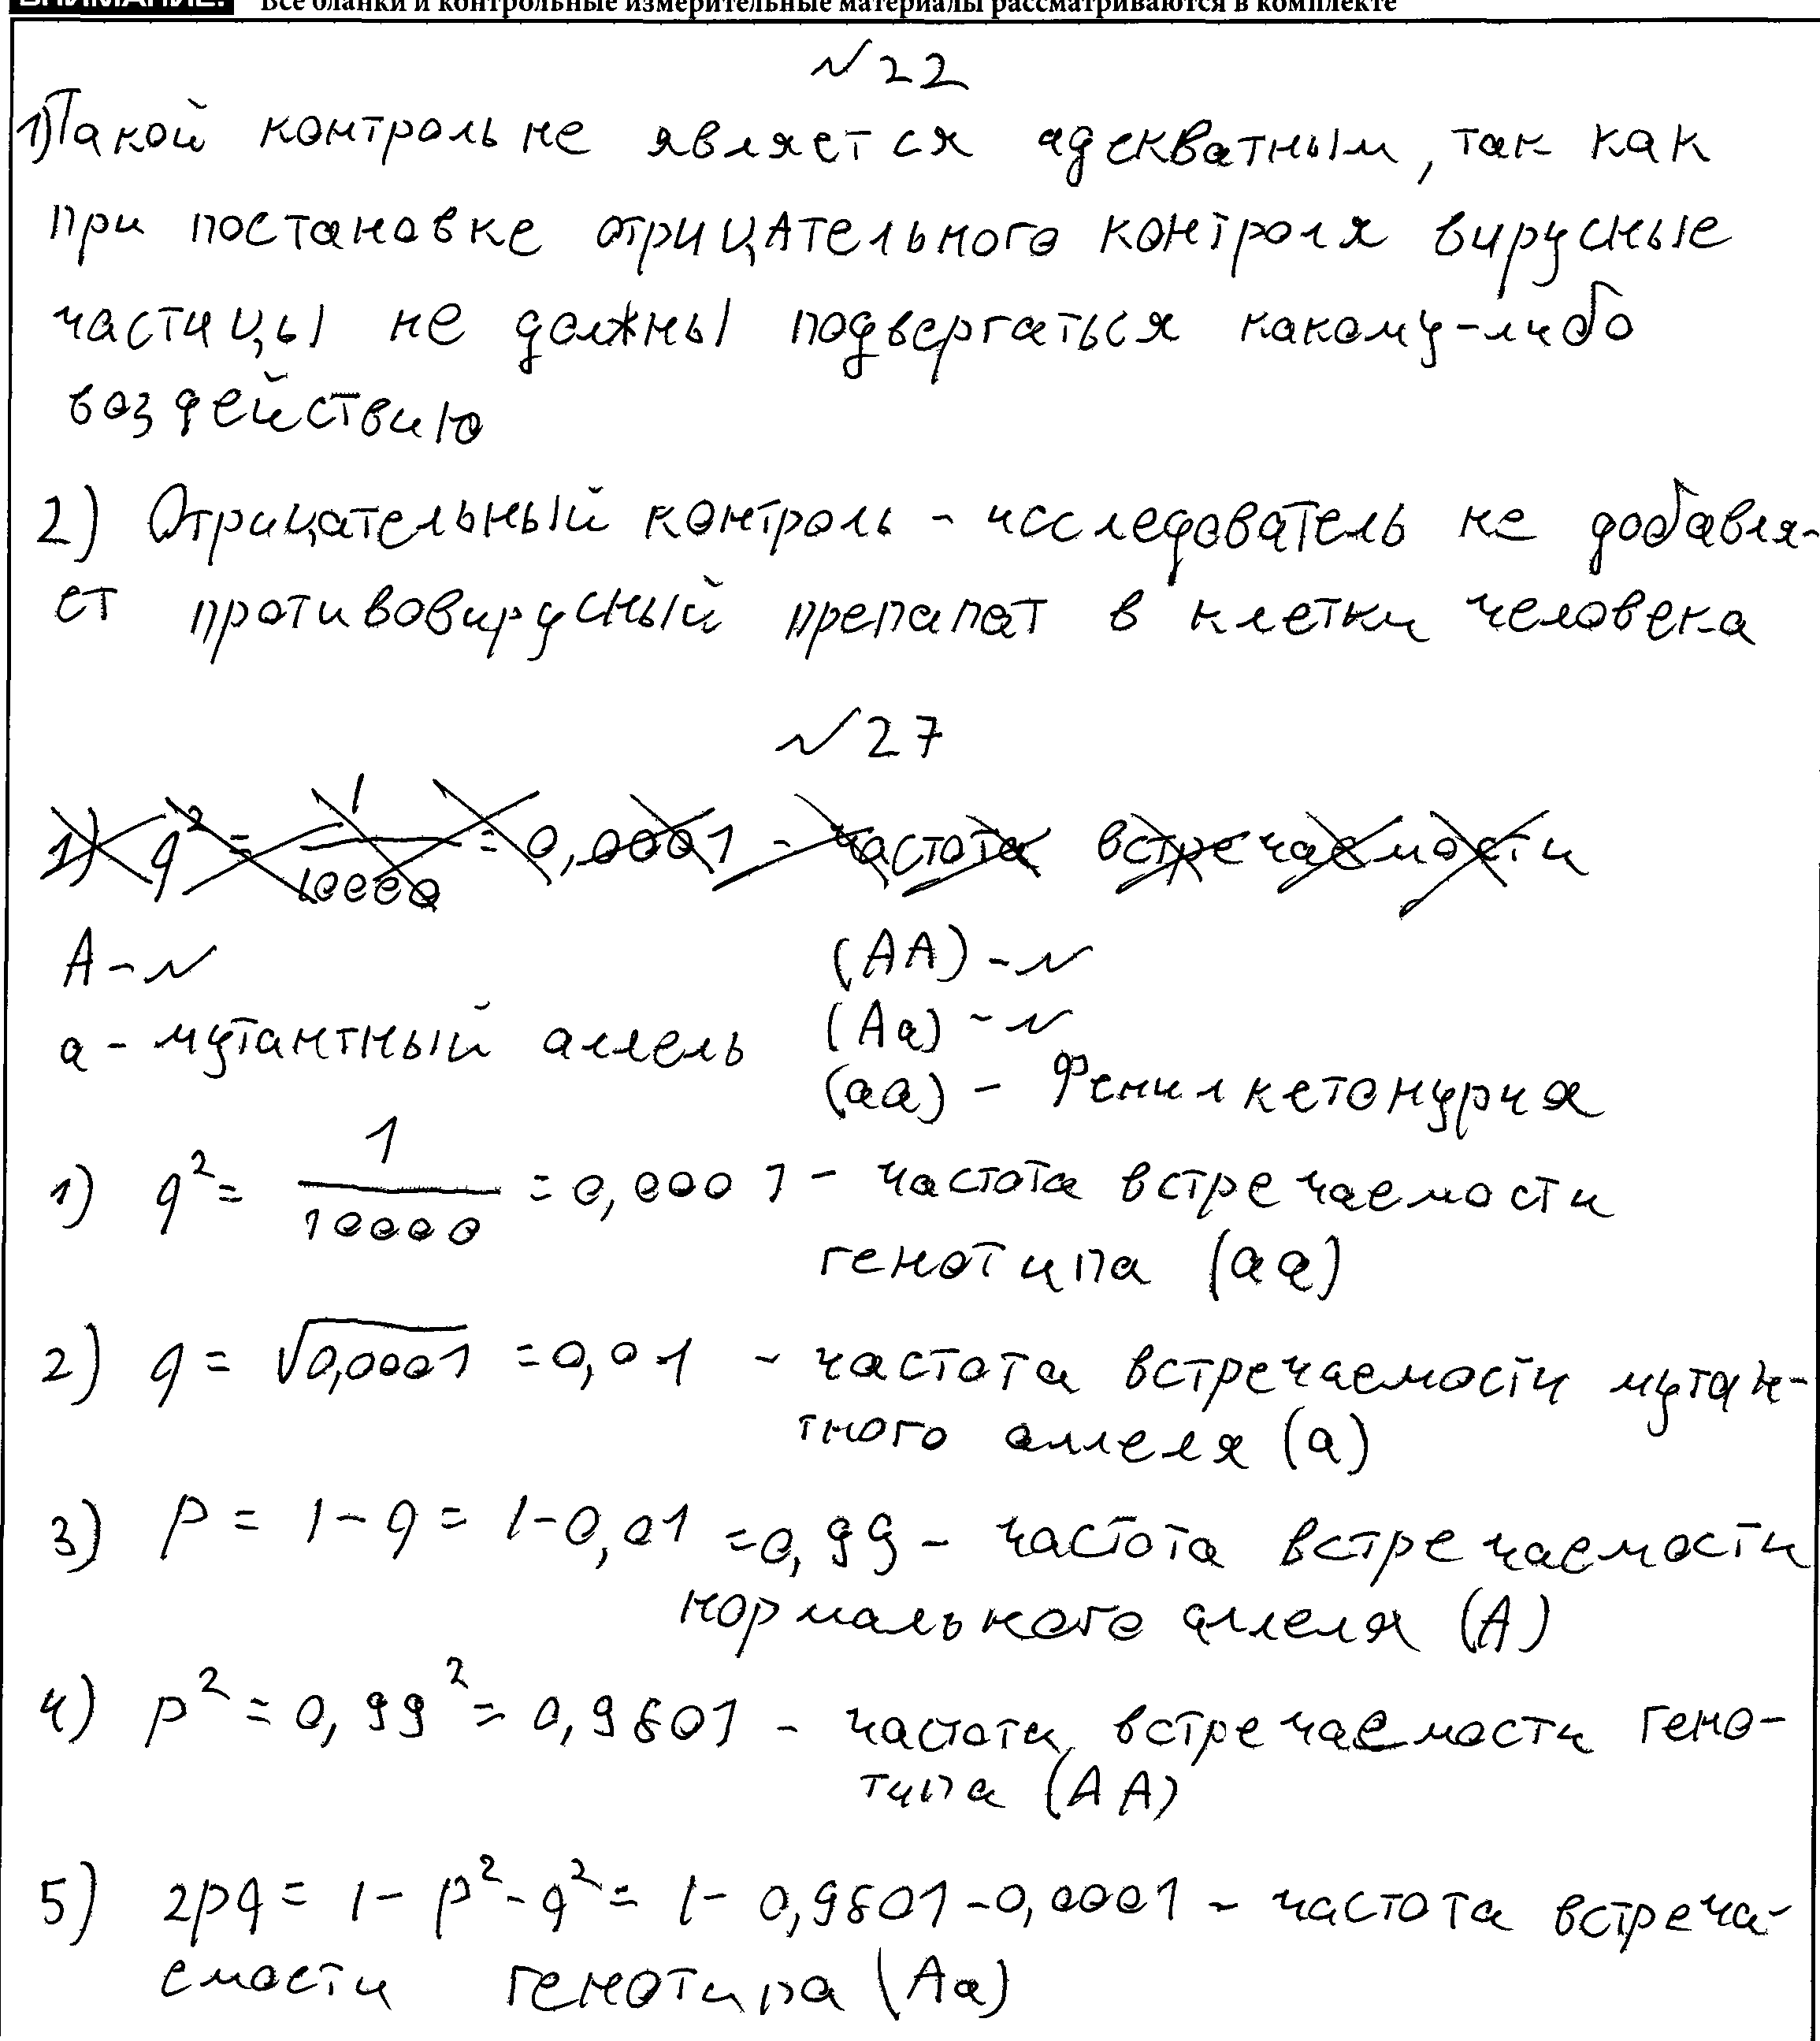 ВНИМАНИЕ! Все бланки и контрольные измерительные материалы рассматриваются в комплекте
№22
1) Такой контроль не является адекватным, так как
при постановке отрицательного контроля вирусные
частицы не должны подвергаться какому-либо
воздействию
2) Отрицательный контроль - исследователь не добавля-
ет противовирусный препапат в клетки человека
№27
1) q² = 1/10000 = 0,0001 - частота встречаемости
A - N (AA) - N
a - мутантный аллель (Aa) - N
(aa) - Фенилкетонурия
1) q² = 1/10000 = 0,0001 - частота встречаемости
генотипа (aa)
2) q = √0,0001 = 0,01 - частота встречаемости мутан-
тного аллеля (a)
3) p = 1 - q = 1 - 0,01 = 0,99 - частота встречаемости
нормального аллеля (A)
4) p² = 0,99² = 0,9801 - частота встречаемости гено-
типа (AA)
5) 2pq = 1 - p² - q² = 1 - 0,9801 - 0,0001 - частота встреча-
емости генотипа (Aa)